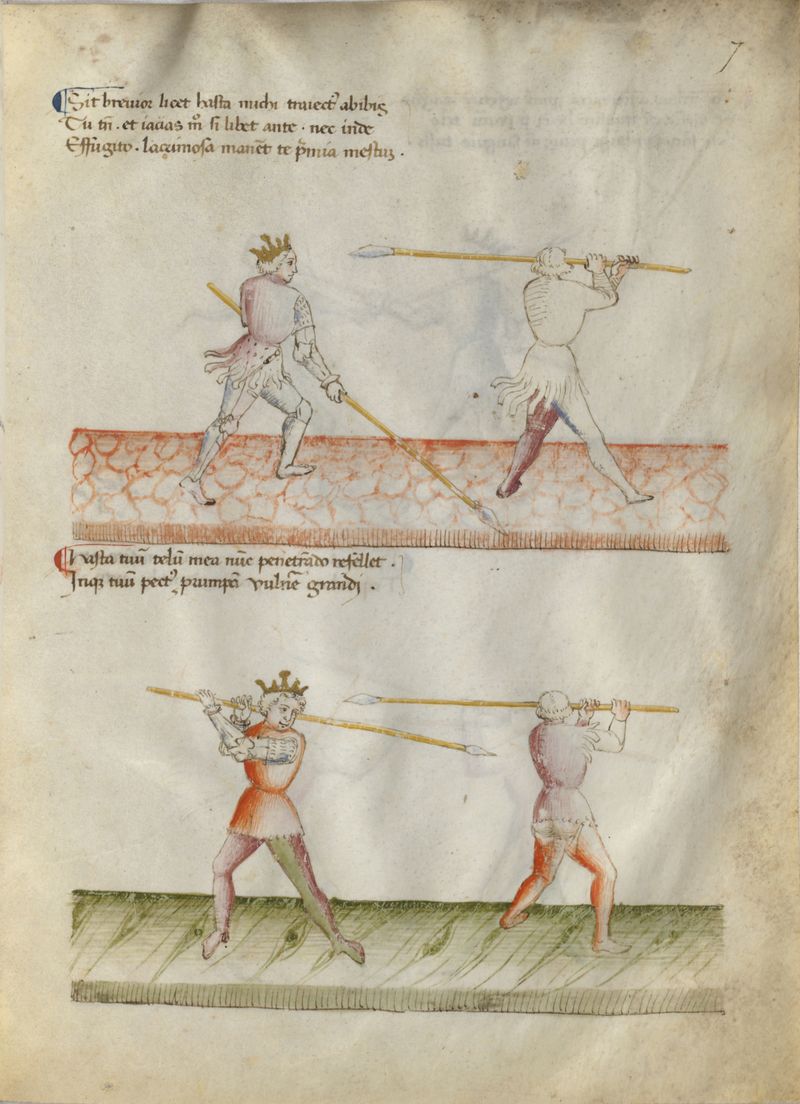 7
Sit breuior licet hasta michi traiectꝰ abibis
Tu tñ . et iacias m̊ si libet ante . nec inde
Effugito . lacrimosa manēt te p̄mia mestuȝ .
Hasta tuū telū mea nūc penetrādo refellet .
Inqꝫ tuū pectꝰ prumpā vulnē grandi .